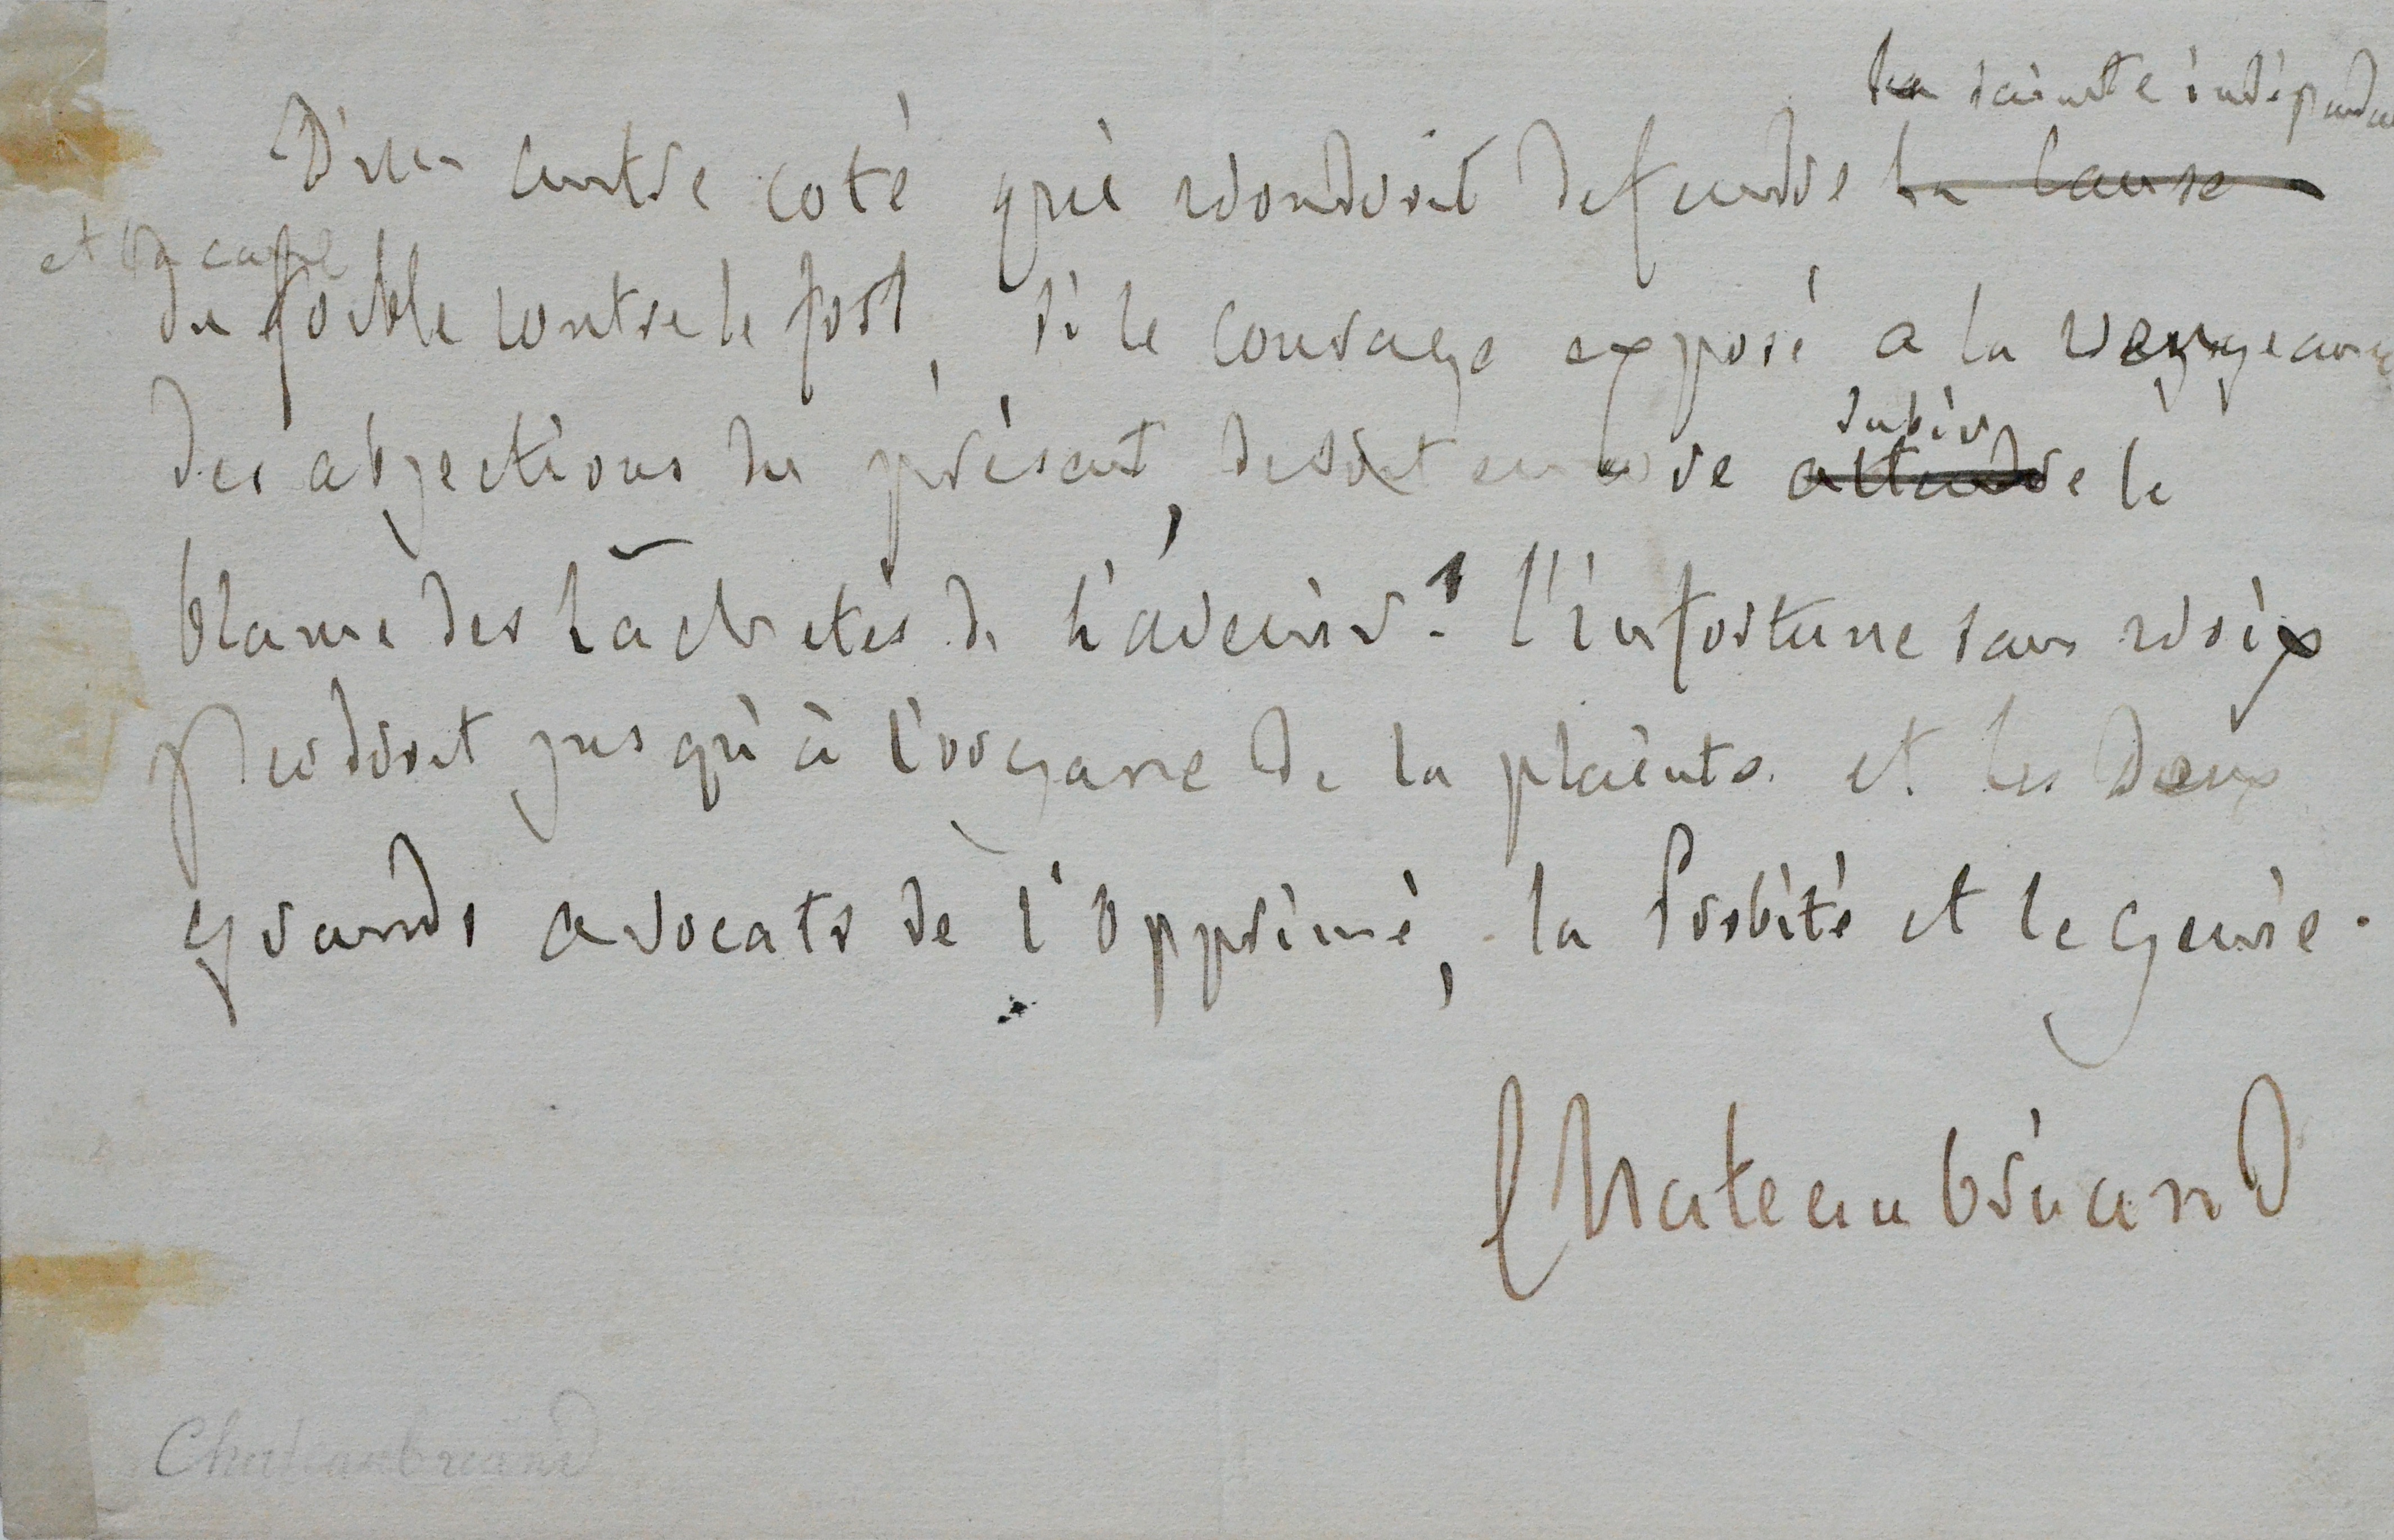 la sainte indépendan
D'un autre coté qui voudroit defendre la cause
et la cause
du foible contre le fort, si le courage exposé a la vengeance
subir
des abjections du présent, devoit encore attendre le
blame des lâchetés de l'avenir? l'infortune sans voix
perdroit jusqu'à l'organe de la plainte et les deux
grands avocats de l'opprimé, la Probité et le genie.
Chateaubriand
Chateaubriand